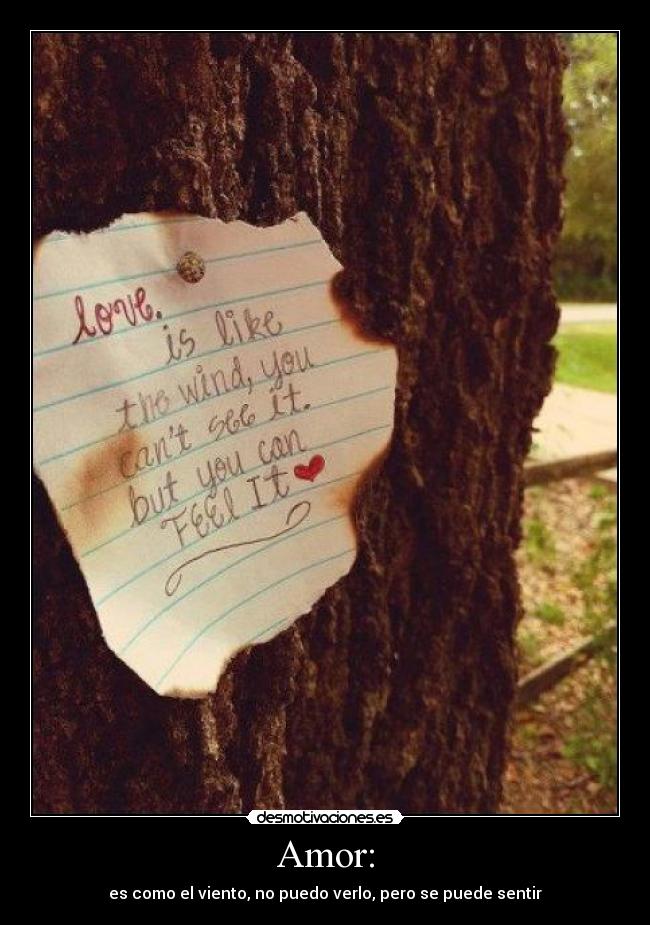 love.
is like
the wind, you
can't see it.
but you can
FEEl It ❤
desmotivaciones.es
Amor:
es como el viento, no puedo verlo, pero se puede sentir